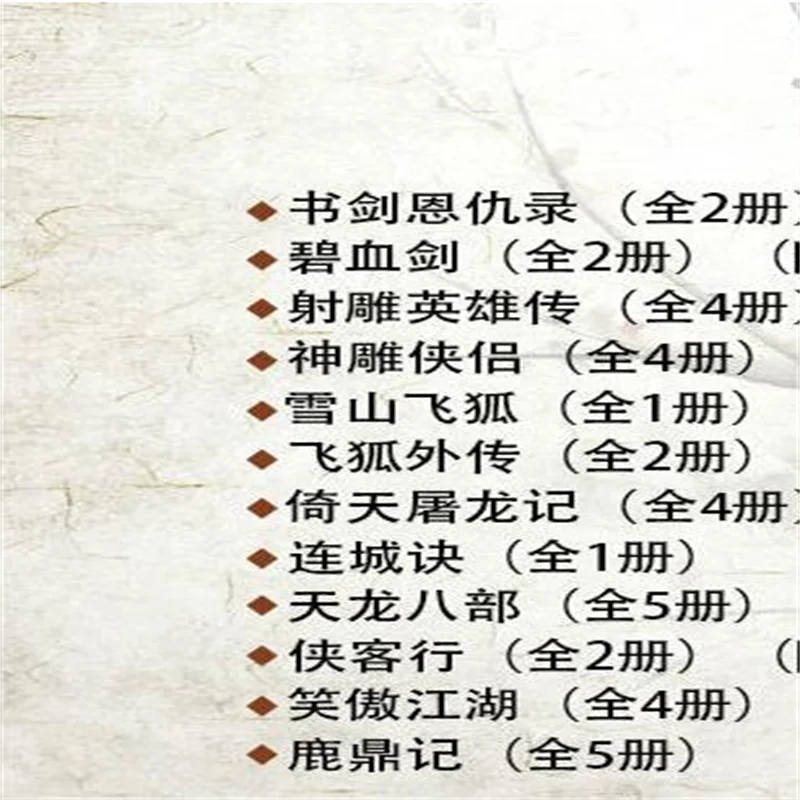 ◆书剑恩仇录（全2册）
◆碧血剑（全2册）（
◆射雕英雄传（全4册）
◆神雕侠侣（全4册）
◆雪山飞狐（全1册）
◆飞狐外传（全2册）
◆倚天屠龙记（全4册）
◆连城诀（全1册）
◆天龙八部（全5册）
◆侠客行（全2册）（
◆笑傲江湖（全4册）
◆鹿鼎记（全5册）